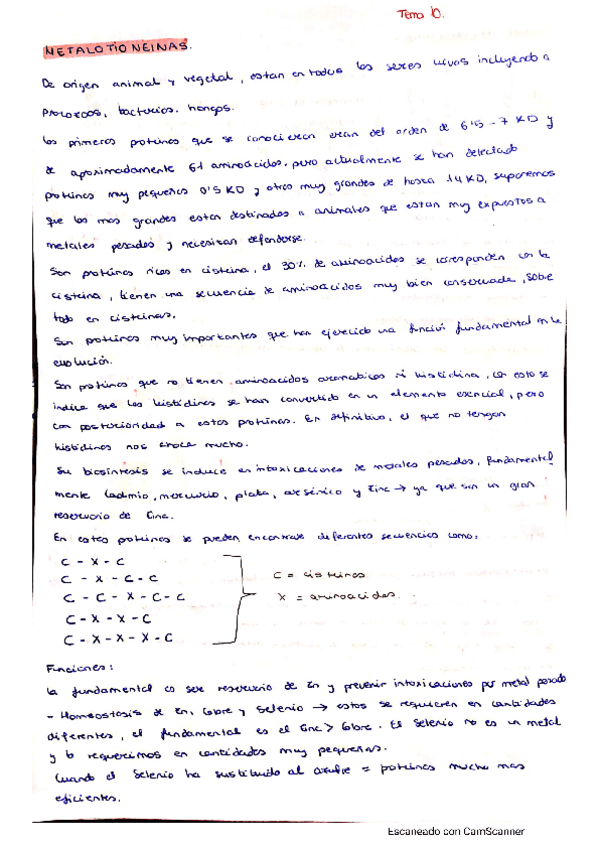 Tema 10.
METALOTIONEINAS.
De origen animal y vegetal, estan en todos los seres vivos incluyendo a
protozoos, bacterias. hongos.
Las primeras proteinas que se conocieron eran del orden de 6'5 - 7 KD y
de aproximadamente 61 aminoácidos, pero actualmente se han detectado
proteinas muy pequeñas 0'5 KD y otras muy grandes de hasta 14 KD, suponemos
que las mas grandes estan destinadas a animales que estan muy expuestos a
metales pesados y necesitan defenderse.
Son proteinas ricas en cisteina, el 30% de aminoacidos se corresponden con la
cisteina, tienen una secuencia de aminoácidos muy bien conservada, sobre
todo en cisteinas.
Son proteinas muy importantes que han ejercido una función fundamental en la
evolución.
Son proteinas que no tienen aminoácidos aromaticos ni histidina, con esto se
indica que las histidinas se han convertido en un elemento esencial, pero
con posterioridad a estas proteinas. En definitiva, el que no tengan
histidinas nos choca mucho.
Su biosintesis se induce en intoxicaciones de metales pesados, fundamental
mente Cadmio, mercurio, plata, arsénico y Zinc → ya que son un gran
reservorio de Zinc.
En estas proteinas se pueden encontrar diferentes secuencias como:
C - X - C
C - X - C - C
C - C - X - C - C
C - X - X - C
C - X - X - X - C
C = cisteinas
X = aminoácidos.
Funciones:
La fundamental es ser reservorio de Zn y prevenir intoxicaciones por metal pesado
- Homeostasis de Zn, Cobre y Selenio → estos se requieren en cantidades
diferentes, el fundamental es el Zinc > Cobre. El Selenio no es un metal
y lo requerimos en cantidades muy pequeñas.
Cuando el Selenio ha sustituido al azufre = proteinas mucho mas
eficientes.
Escaneado con CamScanner